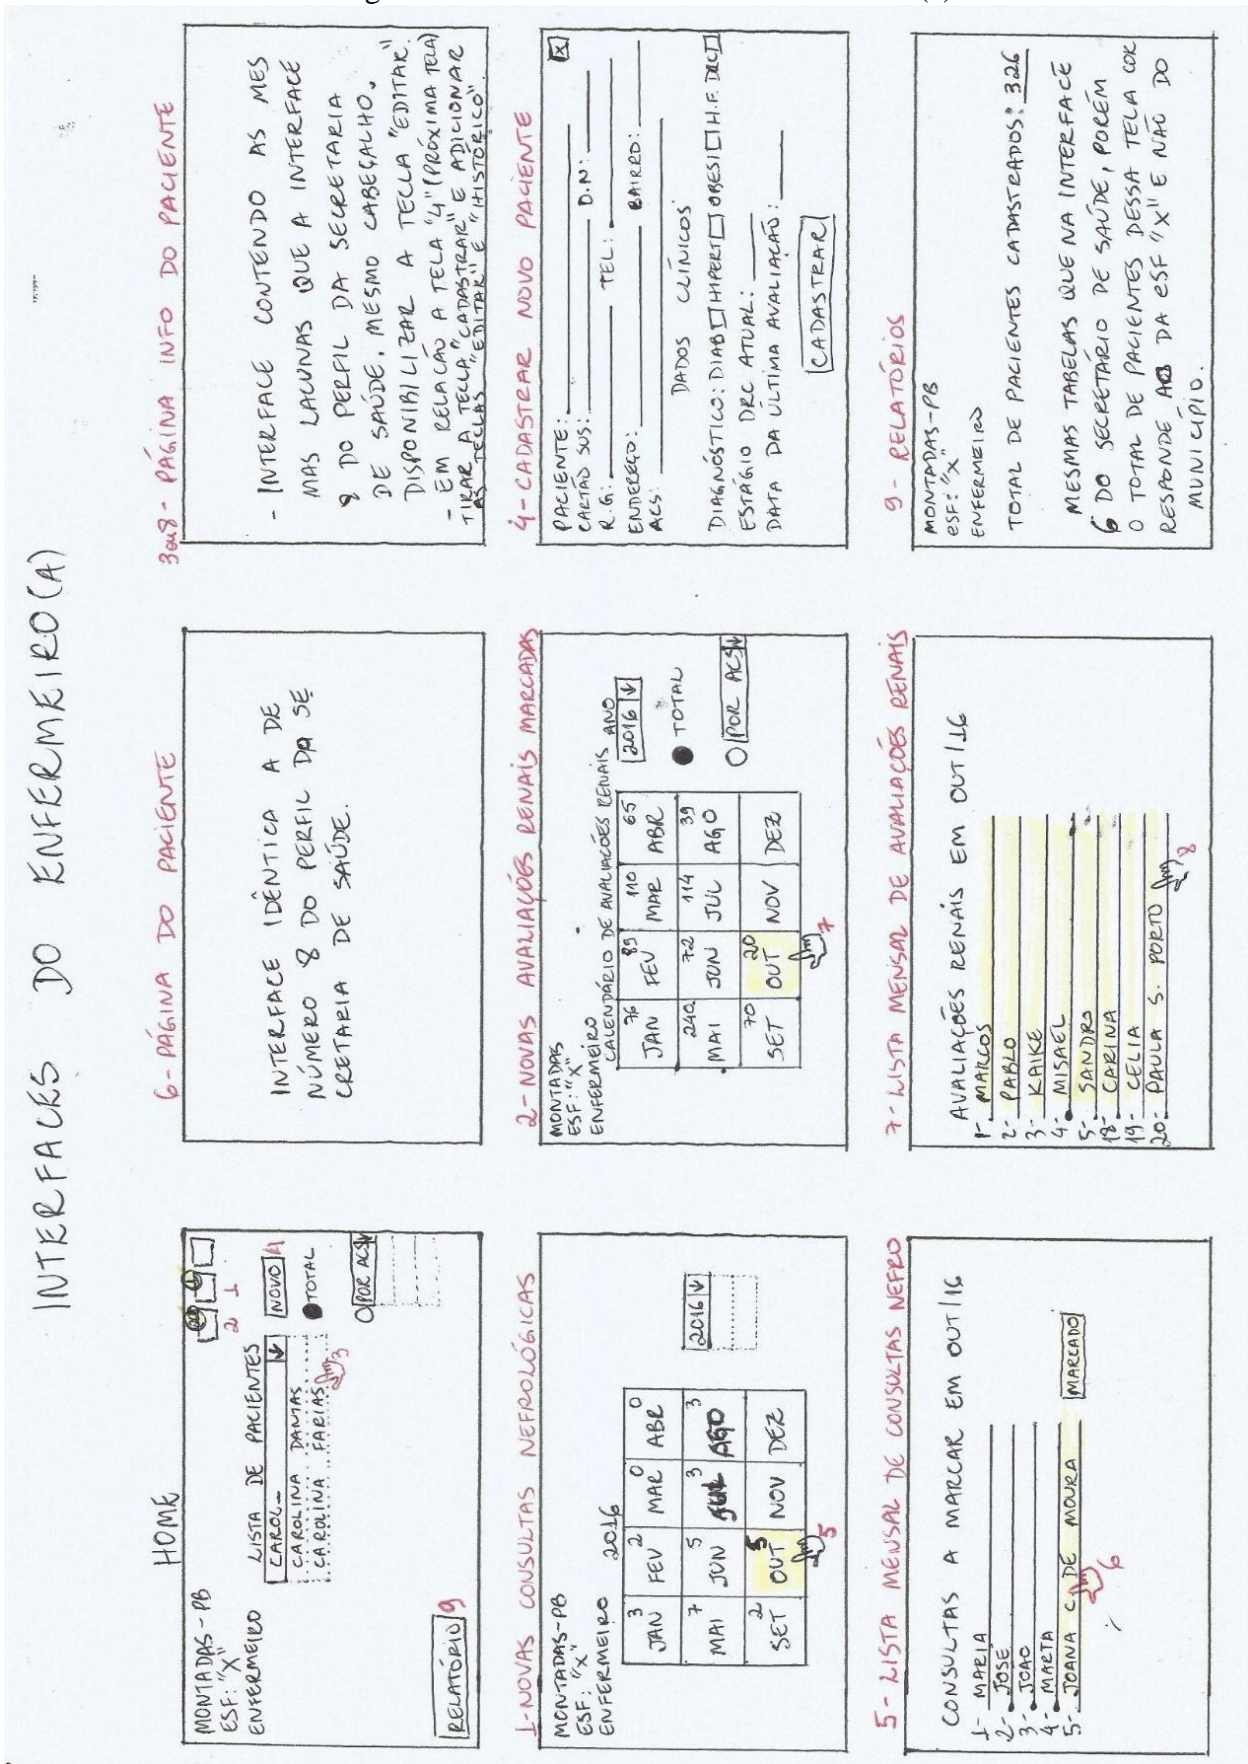 INTERFACES DO ENFERMEIRO(A)
HOME
MONTADAS-PB
ESF: "X"
ENFERMEIRO
2 1
LISTA DE PACIENTES
CAROL_
CAROLINA DANTAS
CAROLINA FARIAS
3
NOVO 4
TOTAL
POR ACS
RELATÓRIO 9
6-PÁGINA DO PACIENTE
INTERFACE IDÊNTICA A DE
NÚMERO 8 DO PERFIL DA SE
CRETARIA DE SAÚDE.
3ou8-PÁGINA INFO DO PACIENTE
- INTERFACE CONTENDO AS MES
MAS LACUNAS QUE A INTERFACE
9 DO PERFIL DA SECRETARIA
DE SAÚDE. MESMO CABEÇALHO.
DISPONIBILIZAR A TECLA "EDITAR".
- EM RELAÇÃO A TELA "4" (PRÓXIMA TELA)
TIRAR A TECLA "CADASTRAR" E ADICIONAR
AS TECLAS "EDITAR" E "HISTÓRICO"
1-NOVAS CONSULTAS NEFROLÓGICAS
MONTADAS-PB
ESF: "X"
ENFERMEIRO
2016
JAN 3 FEV 2 MAR 0 ABR 0
MAI 7 JUN 5 JUL 3 AGO 3
SET 2 OUT 5 NOV DEZ
5
2016
2-NOVAS AVALIAÇÕES RENAIS MARCADAS
MONTADAS
ESF: "X"
ENFERMEIRO
CALENDÁRIO DE AVALIAÇÕES RENAIS ANO
2016
JAN 76 FEV 89 MAR 110 ABR 65
MAI 240 JUN 72 JUL 114 AGO 39
SET 70 OUT 20 NOV DEZ
7
TOTAL
POR ACS
4-CADASTRAR NOVO PACIENTE
X
PACIENTE:
CARTÃO SUS: D.N:
R.G: TEL:
ENDEREÇO: BAIRRO:
ACS:
DADOS CLÍNICOS
DIAGNÓSTICO: DIAB HIPERT OBESI H.F. DRC
ESTÁGIO DRC ATUAL:
DATA DA ÚLTIMA AVALIAÇÃO:
CADASTRAR
5-LISTA MENSAL DE CONSULTAS NEFRO
CONSULTAS A MARCAR EM OUT/16
1- MARIA
2- JOSÉ
3- JOAO
4- MARTA
5- JOANA C. DE MOURA MARCADO
6
7-LISTA MENSAL DE AVALIAÇÕES RENAIS
AVALIAÇÕES RENAIS EM OUT/16
1- MARCOS
2- PABLO
3- KAIKE
4- MISAEL
5- SANDRO
18- CARINA
19- CELIA
20- PAULA S. PORTO
8
9-RELATÓRIOS
MONTADAS-PB
ESF: "X"
ENFERMEIRO
TOTAL DE PACIENTES CADASTRADOS: 326
MESMAS TABELAS QUE NA INTERFACE
6 DO SECRETÁRIO DE SAÚDE, PORÉM
O TOTAL DE PACIENTES DESSA TELA COR
RESPONDE AOS DA ESF "X" E NÃO DO
MUNICÍPIO.